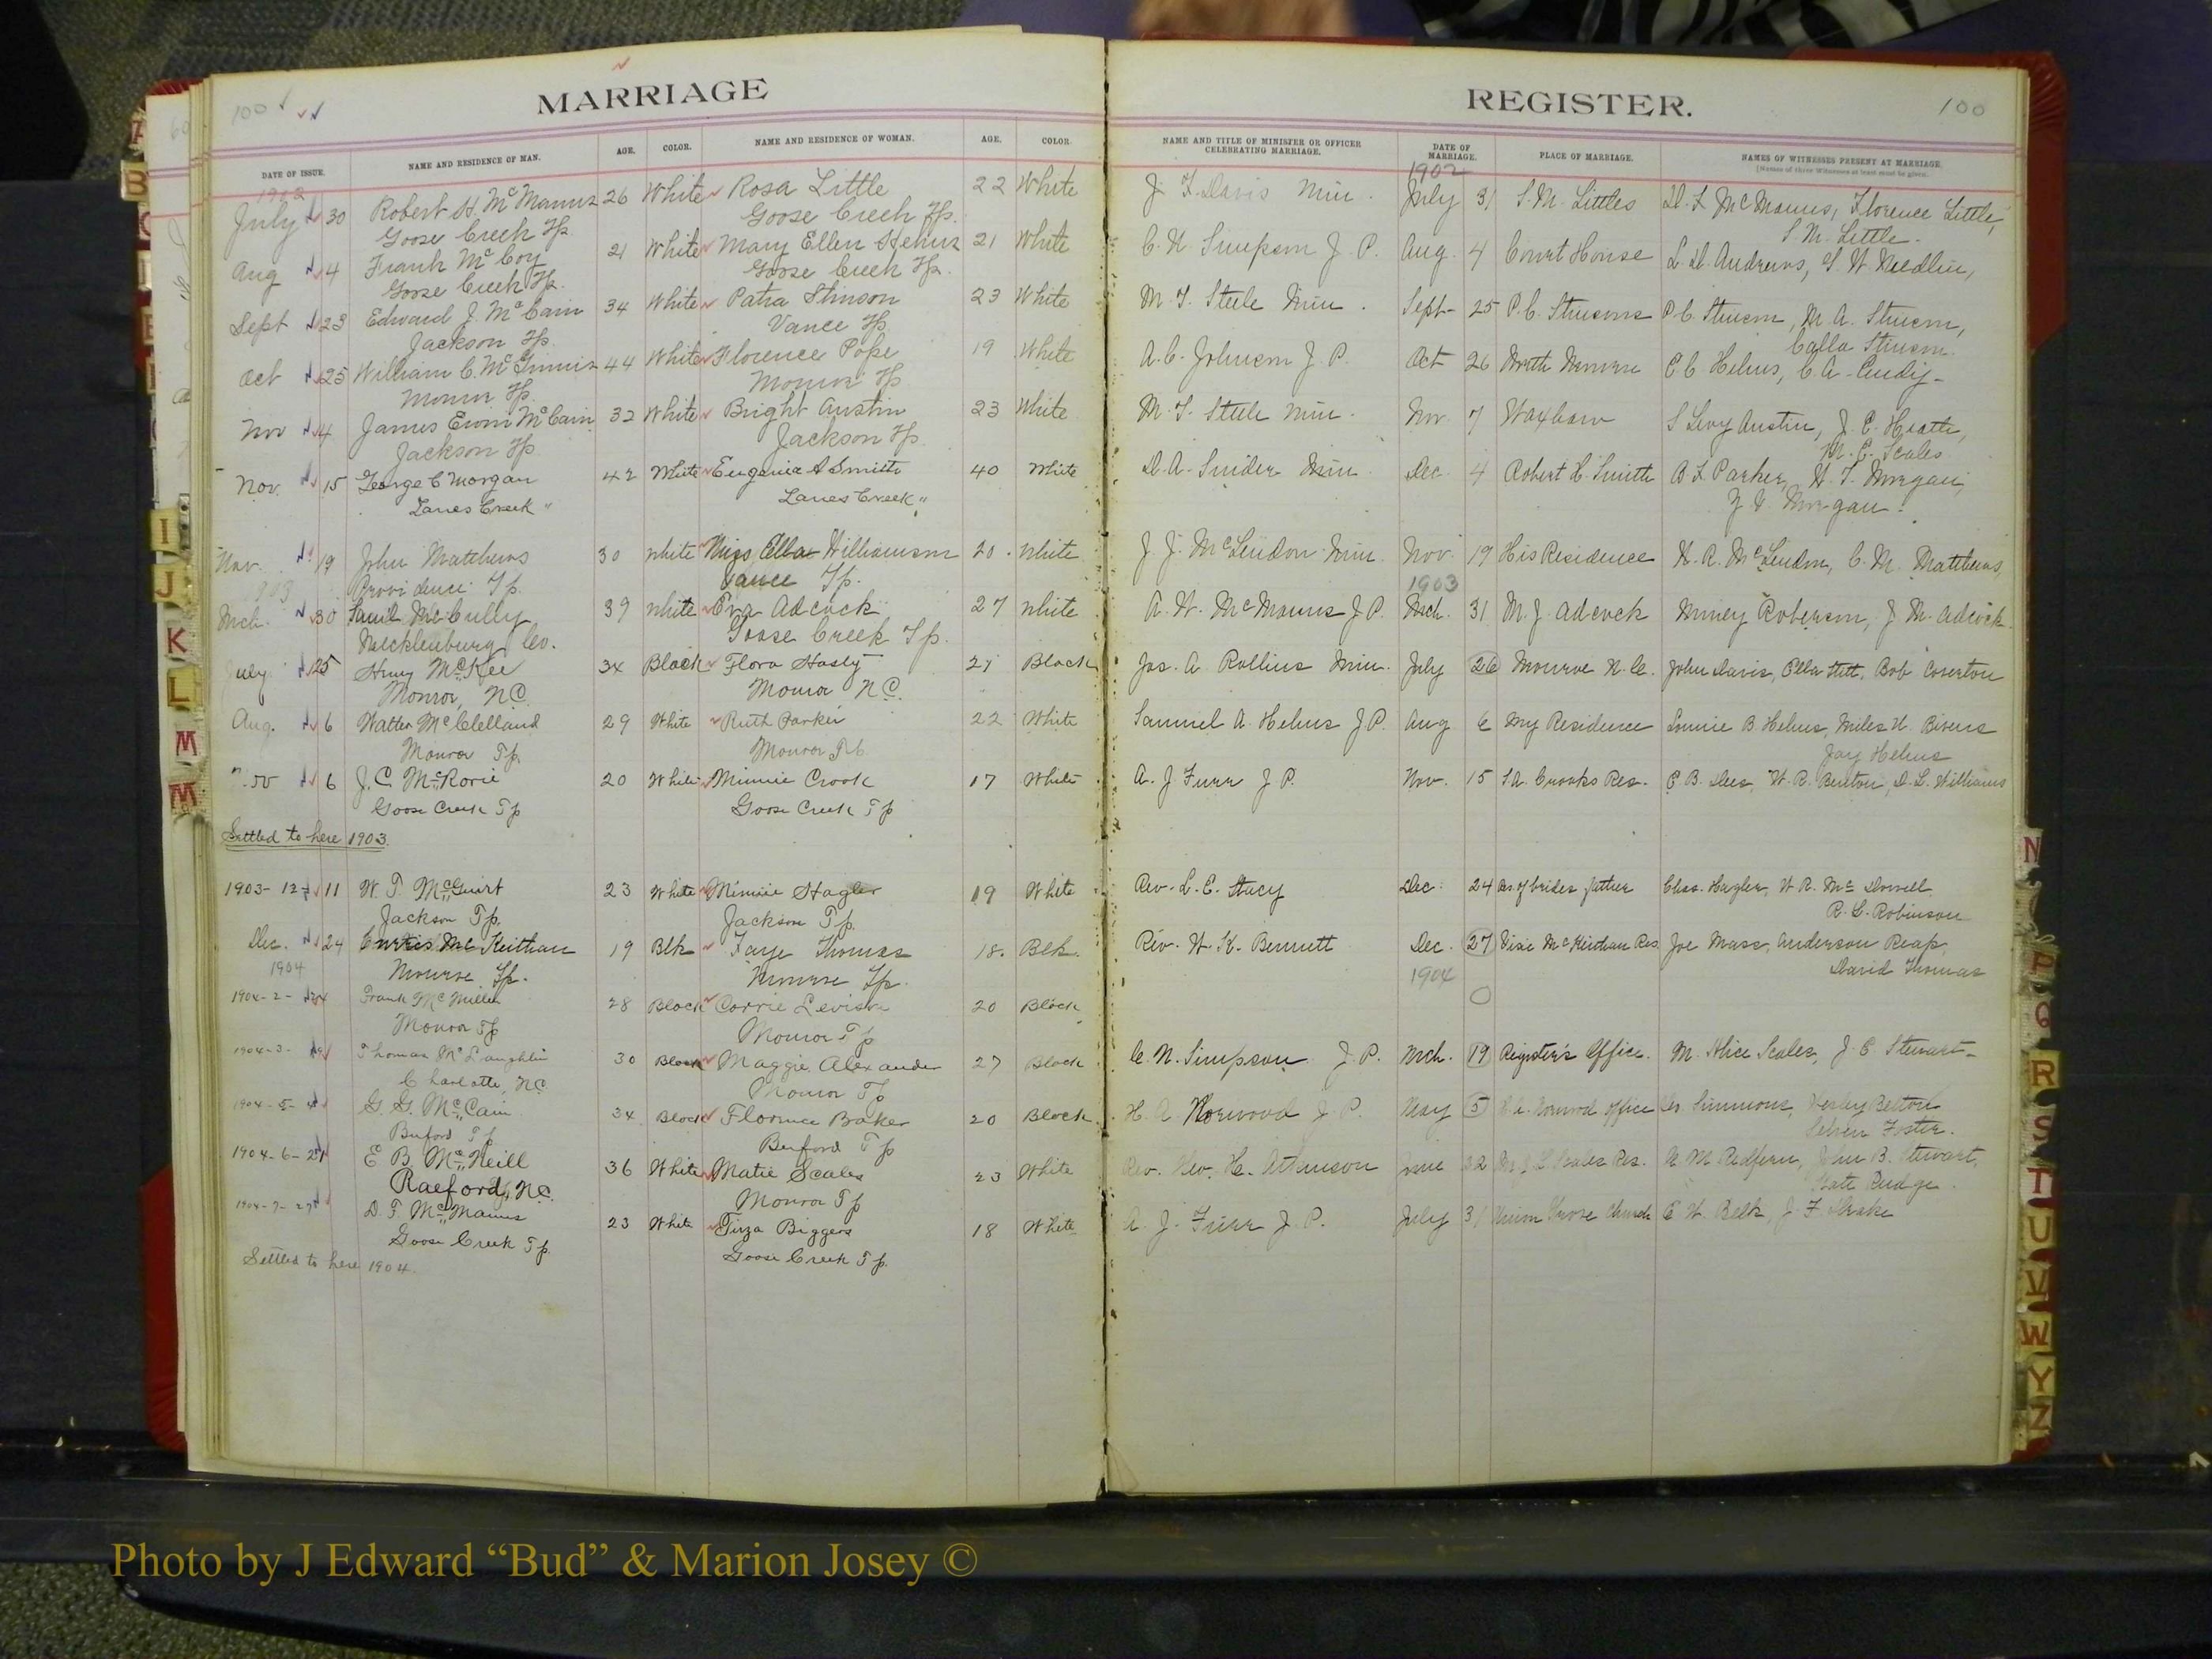 MARRIAGE
REGISTER.
100
100
DATE OF ISSUE. NAME AND RESIDENCE OF MAN. AGE. COLOR. NAME AND RESIDENCE OF WOMAN. AGE. COLOR.
NAME AND TITLE OF MINISTER OR OFFICER CELEBRATING MARRIAGE. DATE OF MARRIAGE. PLACE OF MARRIAGE. NAMES OF WITNESSES PRESENT AT MARRIAGE.
[Names of three Witnesses at least must be given.
1902 1902
July 30 Robert H. McManus 26 White Rosa Little 22 White J. F. Davis Min. July 31 S. M. Littles D. F. McManus, Florence Little,
Goose Creek Tp. Goose Creek Tp. S. M. Little.
Aug 4 Frank McCoy 21 White Mary Ellen Helms 21 White C. N. Simpson J. P. Aug. 4 Court House L. D. Andrews,
Goose Creek Tp. Goose Creek Tp.
Sept 23 Edward J. McCain 34 White Stinson 23 White M. T. Steele Min. Sept 25 P. C. Stinsons P. C. Stinson, M. A. Stinson,
Jackson Tp. Vance Tp. Stinson.
Oct 25 William C. McGinnis 44 White Florence Pope 19 White A. C. Johnson J. P. Oct 26 North Monroe E C Helms,
Monroe Tp. Monroe Tp
Nov 4 James McCain 32 White Bright Austin 23 White M. T. Steele Min. Nov. 7 Waxhaw S Levy Austin, J. E. Heath,
Jackson Tp. Jackson Tp. M. E. Scales
Nov. 15 George C Morgan 42 White Eugenia A Smith 40 White D. A. Snider Min Dec. 4 Robert H. Smith B F Parker, H. T. Morgan,
Lanes Creek " Lanes Creek " Morgan.
Nov. 19 John Matthews 30 White Miss Ella Williamson 20 White J. J. McLendon Min. Nov 19 His Residence H. R. McLendon, C. M. Matthews
1903 Providence Tp. Vance Tp. 1903
Mch. 30 McCully 39 White Eva Adcock 27 White A. W. McManus J. P. Mch. 31 M. J. Adcock Roberson, J. M. Adcock.
Mecklenburg Co. Goose Creek Tp.
July 25 Henry McKee 34 Black Flora Hasty 21 Black Jas. A. Rollins Min. July 26 Monroe N. C. John Davis, Ella Stitt, Bob Coverton
Monroe, N C. Monroe N C.
Aug. 6 Walter McClelland 29 White Ruth Parker 22 White Samuel A. Helms J. P. Aug 6 My Residence B. Helms, Miles H. Bivens
Monroe Tp. Monroe Tp. Jay Helms
Nov 6 J. C. McRorie 20 White Minnie Crook 17 White A. J. Furr J. P. Nov. 15 Crooks Res. W. R. Benton, D. L. Williams
Goose Creek Tp Goose Creek Tp
Settled to here 1903.
1903-12- 11 W. T. McGuirt 23 White Minnie Hagler 19 White Rev. L. E. Stacy Dec. 24 Res of brides father Chas. Hagler,
Jackson Tp. Jackson Tp. R. L. Robinson
Dec. 24 McKeithan 19 Blk Faye Thomas 18. Blk. Rev. W. K. Bennett Dec. 27 McKeithan Res. Joe Mass, Anderson Reap,
1904 Monroe Tp. Monroe Tp. 1904 David Thomas
1904-2-24 Frank McMillen 28 Black Carrie 20 Black
Monroe Tp Monroe Tp
1904-3-19 Thomas McLaughlin 30 Black Maggie Alexander 27 Black C. N. Simpson J. P. Mch. 19 Register's Office. M. Alice Scales, J. E. Stewart
Charlotte, N.C. Monroe Tp
1904-5-4 G. G. McCain 34 Black Florence Baker 20 Black H. A. Norwood J. P. May 5 Norwood office Simmons, Belton
Buford Tp Buford Tp Foster.
1904-6-21 E B McNeill 36 White Matie Scales 23 White Rev. Geo. H. Atkinson June 22 Scales Res. R. M. Redfern, John B. Stewart,
Raeford, N.C. Monroe Tp Kate Rudge.
1904-7-27 D. F. McManus 23 White Tirza Biggers 18 White A. J. Furr J. P. July 31 Union Grove Church E. W. Belk, J. F. Drake
Goose Creek Tp. Goose Creek Tp.
Settled to here 1904.
I
J
K
L
M
M
N
P
Q
R
S
T
U
V
W
Y
Z
Photo by J Edward “Bud” & Marion Josey ©